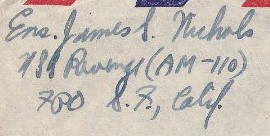 Ens. James S. Nichols
USS Revenge (AM-110)
FPO S.F., Calif.